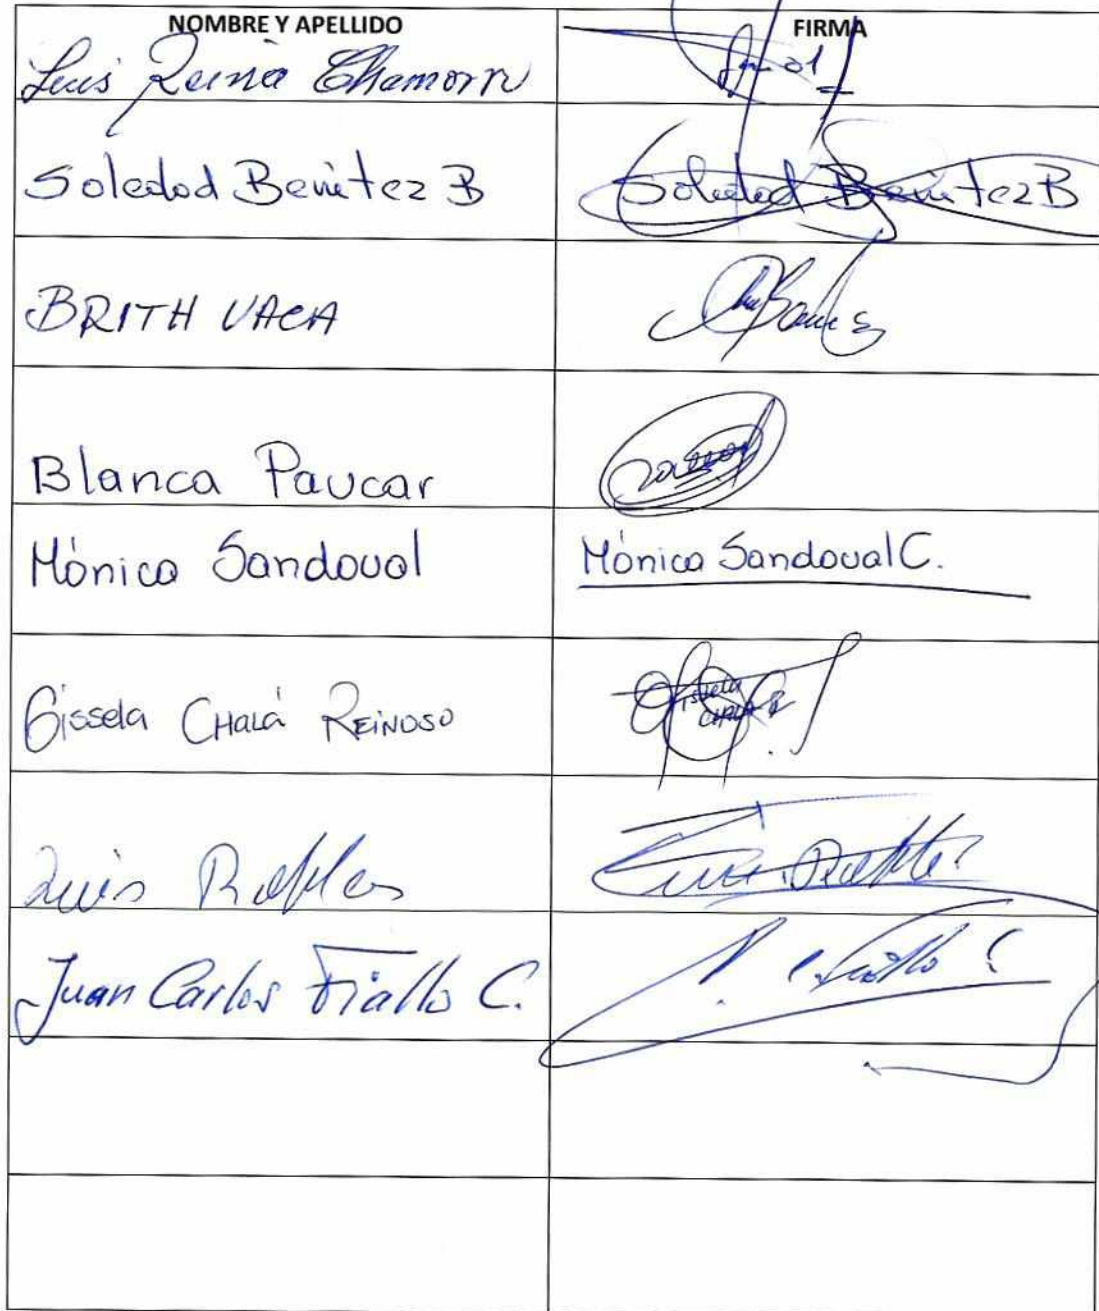 NOMBRE Y APELLIDO FIRMA
Luis Reina Chamorro
Soledad Benitez B Soledad Benitez B
BRITH VACA
Blanca Paucar
Mónica Sandoval Mónica Sandoval C.
Gissela CHALÁ REINOSO Gissela CHALÁ R
Luis Robles Luis Robles
Juan Carlos Fiallo C. Fiallo C